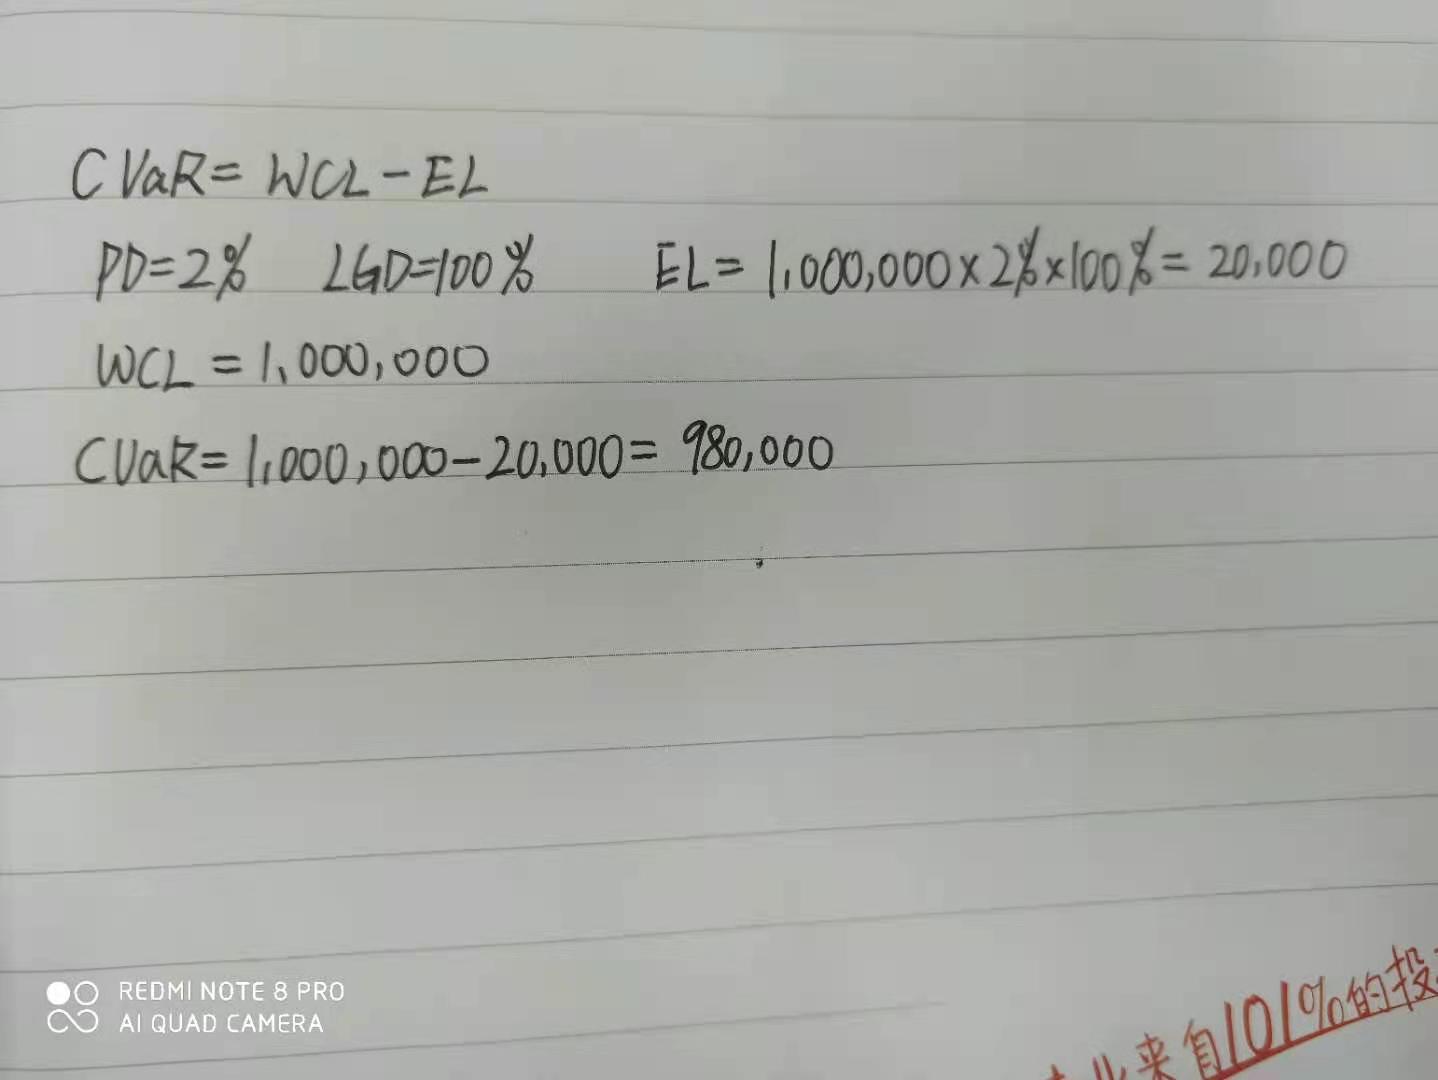 CVaR= WCL-EL
PD=2% LGD=100% EL= 1,000,000×2%×100%= 20,000
WCL = 1,000,000
CVaR= 1,000,000-20,000= 980,000
REDMI NOTE 8 PRO
AI QUAD CAMERA
来自101%的投